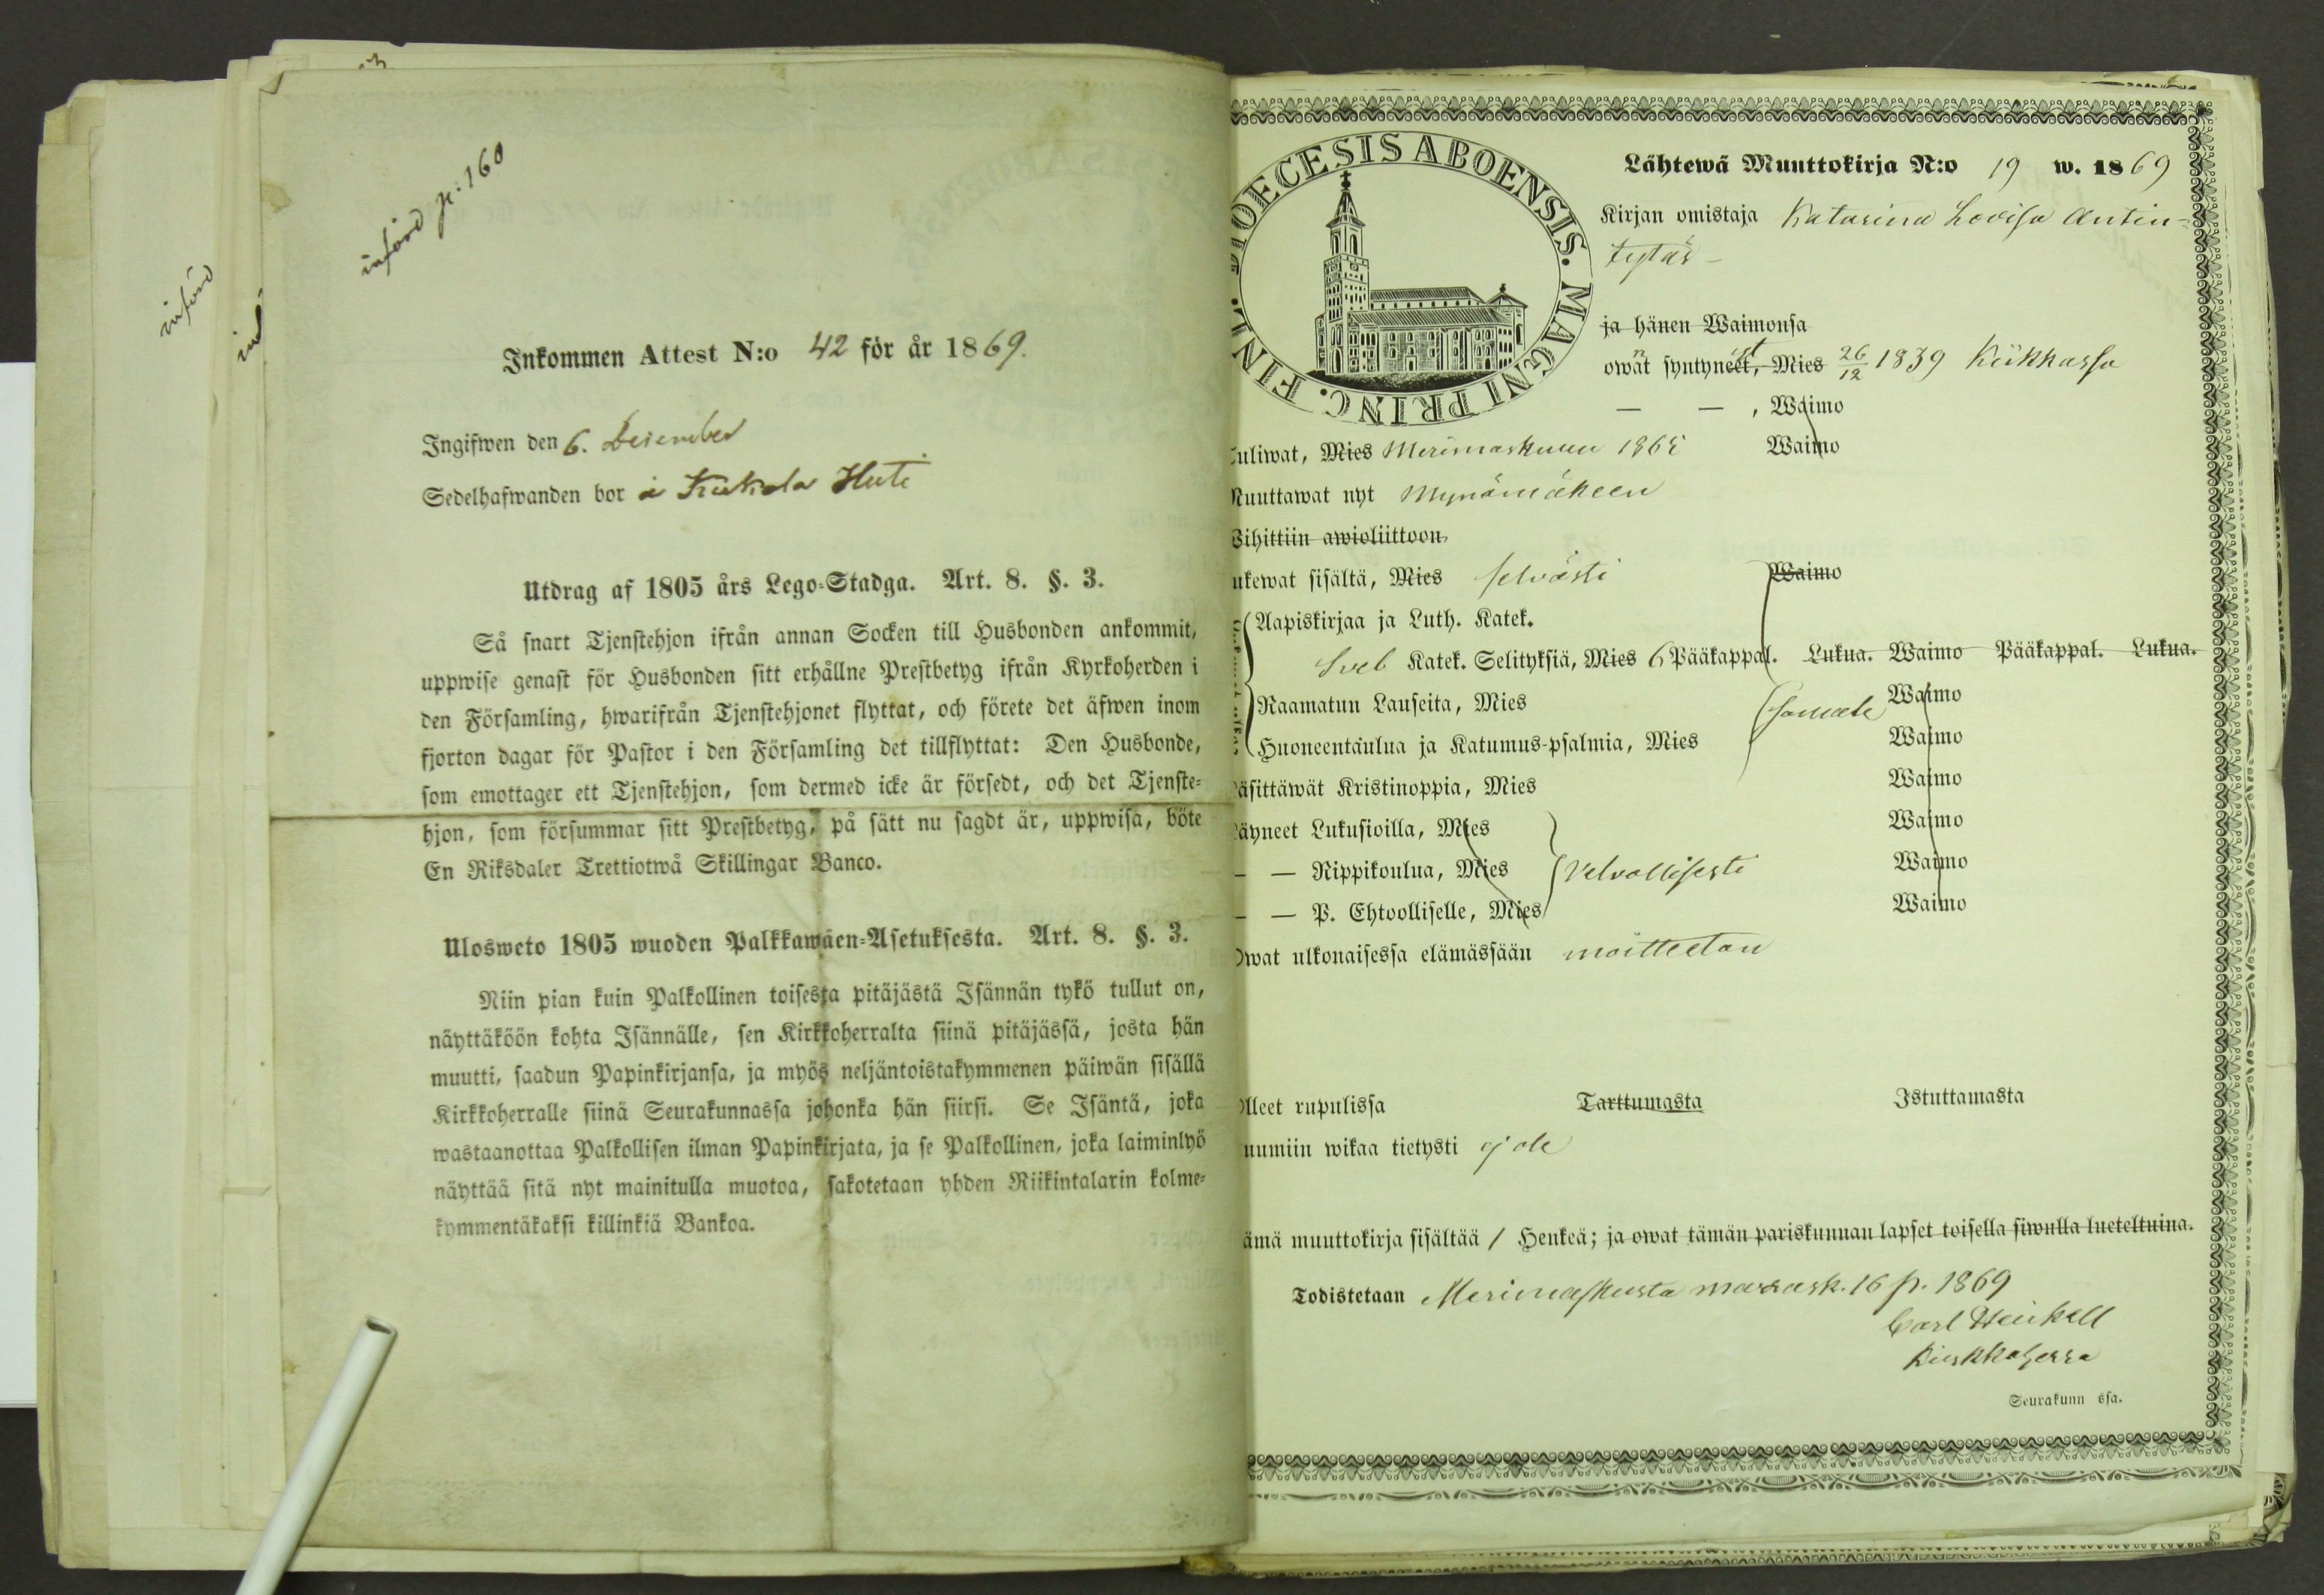 införd
införd p: 160
Inkommen Attest N:o 42 för år 1869.
Ingifwen den 6. December
Sedelhafwanden bor å
Utdrag af 1805 års Lego-Stadga. Art. 8. §. 3.
Så snart Tjenstehjon ifrån annan Socken till Husbonden ankommit,
uppwise genast för Husbonden sitt erhållne Prestbetyg ifrån Kyrkoherden i
den Församling, hwarifrån Tjenstehjonet flyttat, och förete det äfwen inom
fjorton dagar för Pastor i den Församling det tillflyttat: Den Husbonde,
som emottager ett Tjenstehjon, som dermed icke är försedt, och det Tjenste-
hjon, som försummar sitt Prestbetyg, på sätt nu sagdt är, uppwisa, böte
En Riksdaler Trettiotwå Skillingar Banco.
Ulosweto 1805 wuoden Palkkawäen-Asetuksesta. Art. 8. §. 3.
Niin pian kuin Palkollinen toisesta pitäjästä Isännän tykö tullut on,
näyttäköön kohta Isännälle, sen Kirkkoherralta siinä pitäjässä, josta hän
muutti, saadun Papinkirjansa, ja myös neljäntoistakymmenen päiwän sisällä
Kirkkoherralle siinä Seurakunnassa johonka hän siirsi. Se Isäntä, joka
wastaanottaa Palkollisen ilman Papinkirjata, ja se Palkollinen, joka laiminlyö
näyttää sitä nyt mainitulla muotoa, sakotetaan yhden Riikintalarin kolme-
kymmentäkaksi killinkiä Bankoa.
DIOECESIS ABOENSIS. MAGNI PRINC. FINL.
Lähtewä Muuttokirja N:o 19 w. 1869
Kirjan omistaja Katarina Lovisa Antin-
tytär
ja hänen Waimonsa
owat syntyneet, Mies 26/12 1839 Kiikkassa
— — , Waimo
uliwat, Mies Merimaskuun 1865 Waimo
Muuttawat nyt Mynämäkeen
Wihittiin awioliittoon
ukewat sisältä, Mies selvästi Waimo
Aapiskirjaa ja Luth. Katek.
Sveb Katek. Selityksiä, Mies 6 Pääkappal. Lukua. Waimo Pääkappal. Lukua.
Raamatun Lauseita, Mies Waimo
Huoneentaulua ja Katumus-psalmia, Mies Waimo
äsittäwät Kristinoppia, Mies Waimo
äyneet Lukusioilla, Mies Waimo
— — Rippikoulua, Mies Velvollisesti Waimo
— — P. Ehtoolliselle, Mies Waimo
Owat ulkonaisessa elämässään moitteetan
Olleet rupulissa Tarttumasta Istuttamasta
uumiin wikaa tietysti ej ole
ämä muuttokirja sisältää 1 Henkeä; ja owat tämän pariskunnan lapset toisella siwulla lueteltuina.
Todistetaan Merimaskusta marrask. 16 p. 1869
Carl Heinkell
Kirkkoherra
Seurakunn ssa.